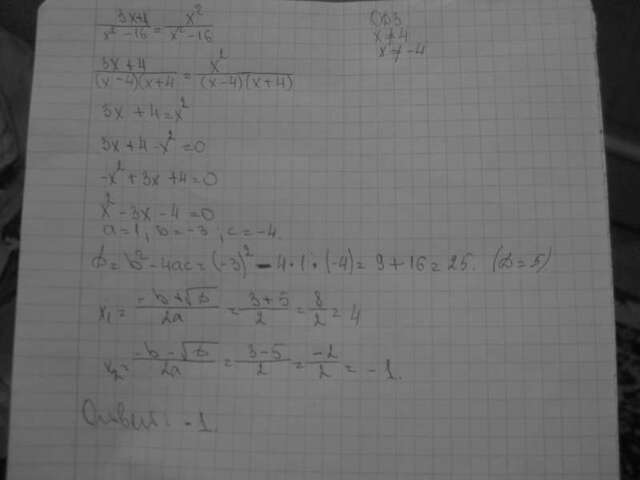 (3x+4)/(x²-16) = x²/(x²-16)
ОДЗ
x≠4
x≠-4
(3x+4)/((x-4)(x+4) = x²/((x-4)(x+4))
3x+4=x²
3x+4-x²=0
-x²+3x+4=0
x²-3x-4=0
a=1, b=-3, c=-4.
D=b²-4ac=(-3)²-4·1·(-4)=9+16=25. (D=5)
x₁=(-b+√D)/2a=(3+5)/2=8/2=4
x₂=(-b-√D)/2a=(3-5)/2=-2/2=-1.
Ответ: -1.